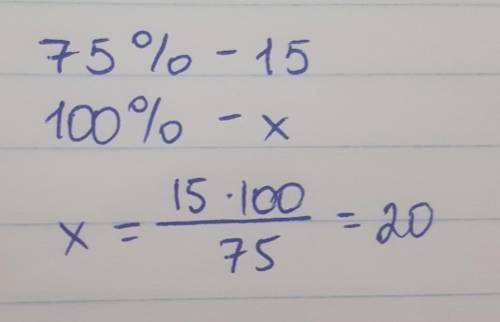 75% - 15
100% - x
x = 15·100/75 = 20